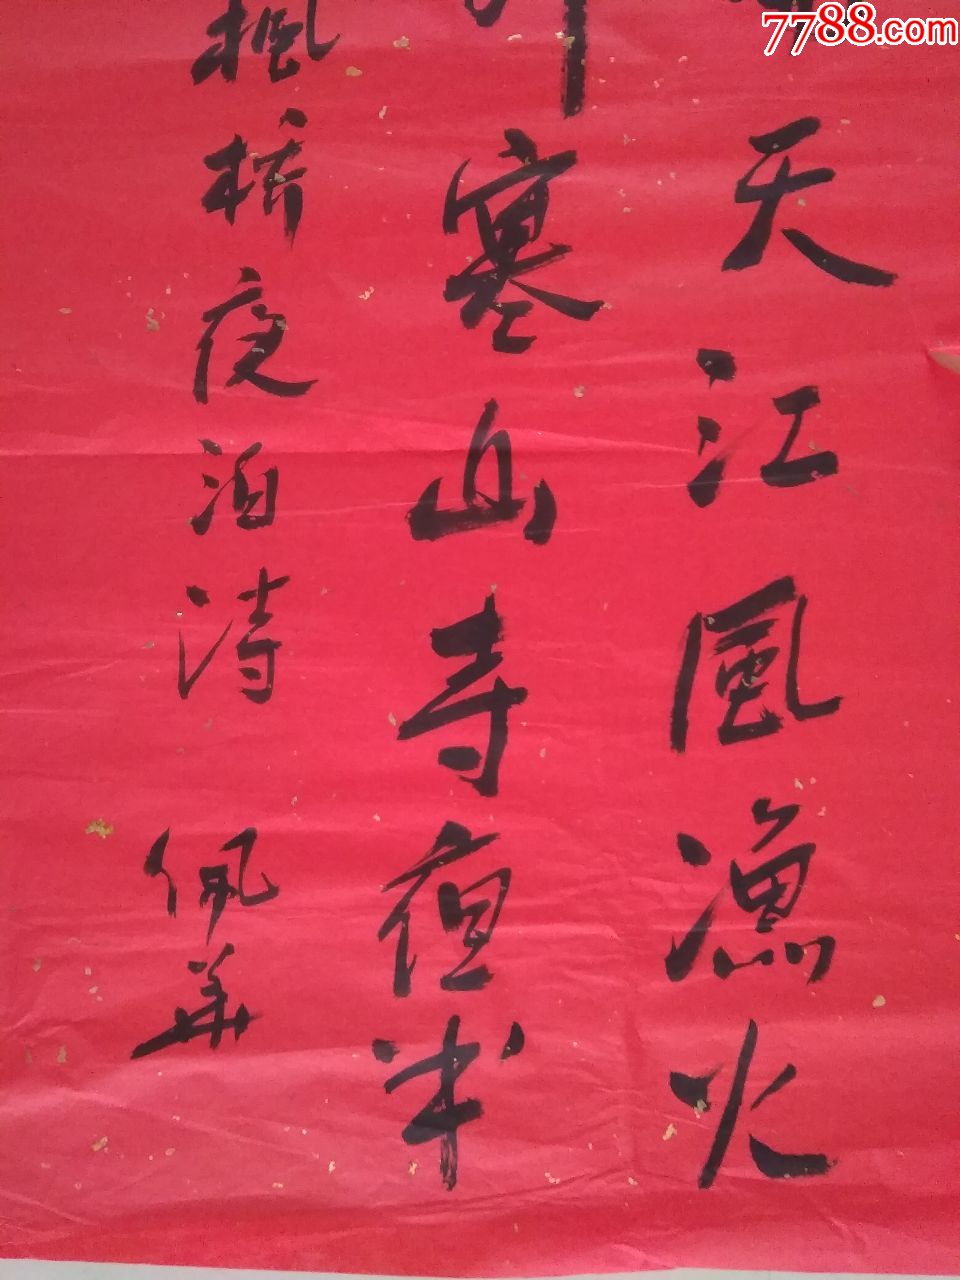 7788.com
天江風漁火
寒山寺夜半
楓橋夜泊詩 佩華